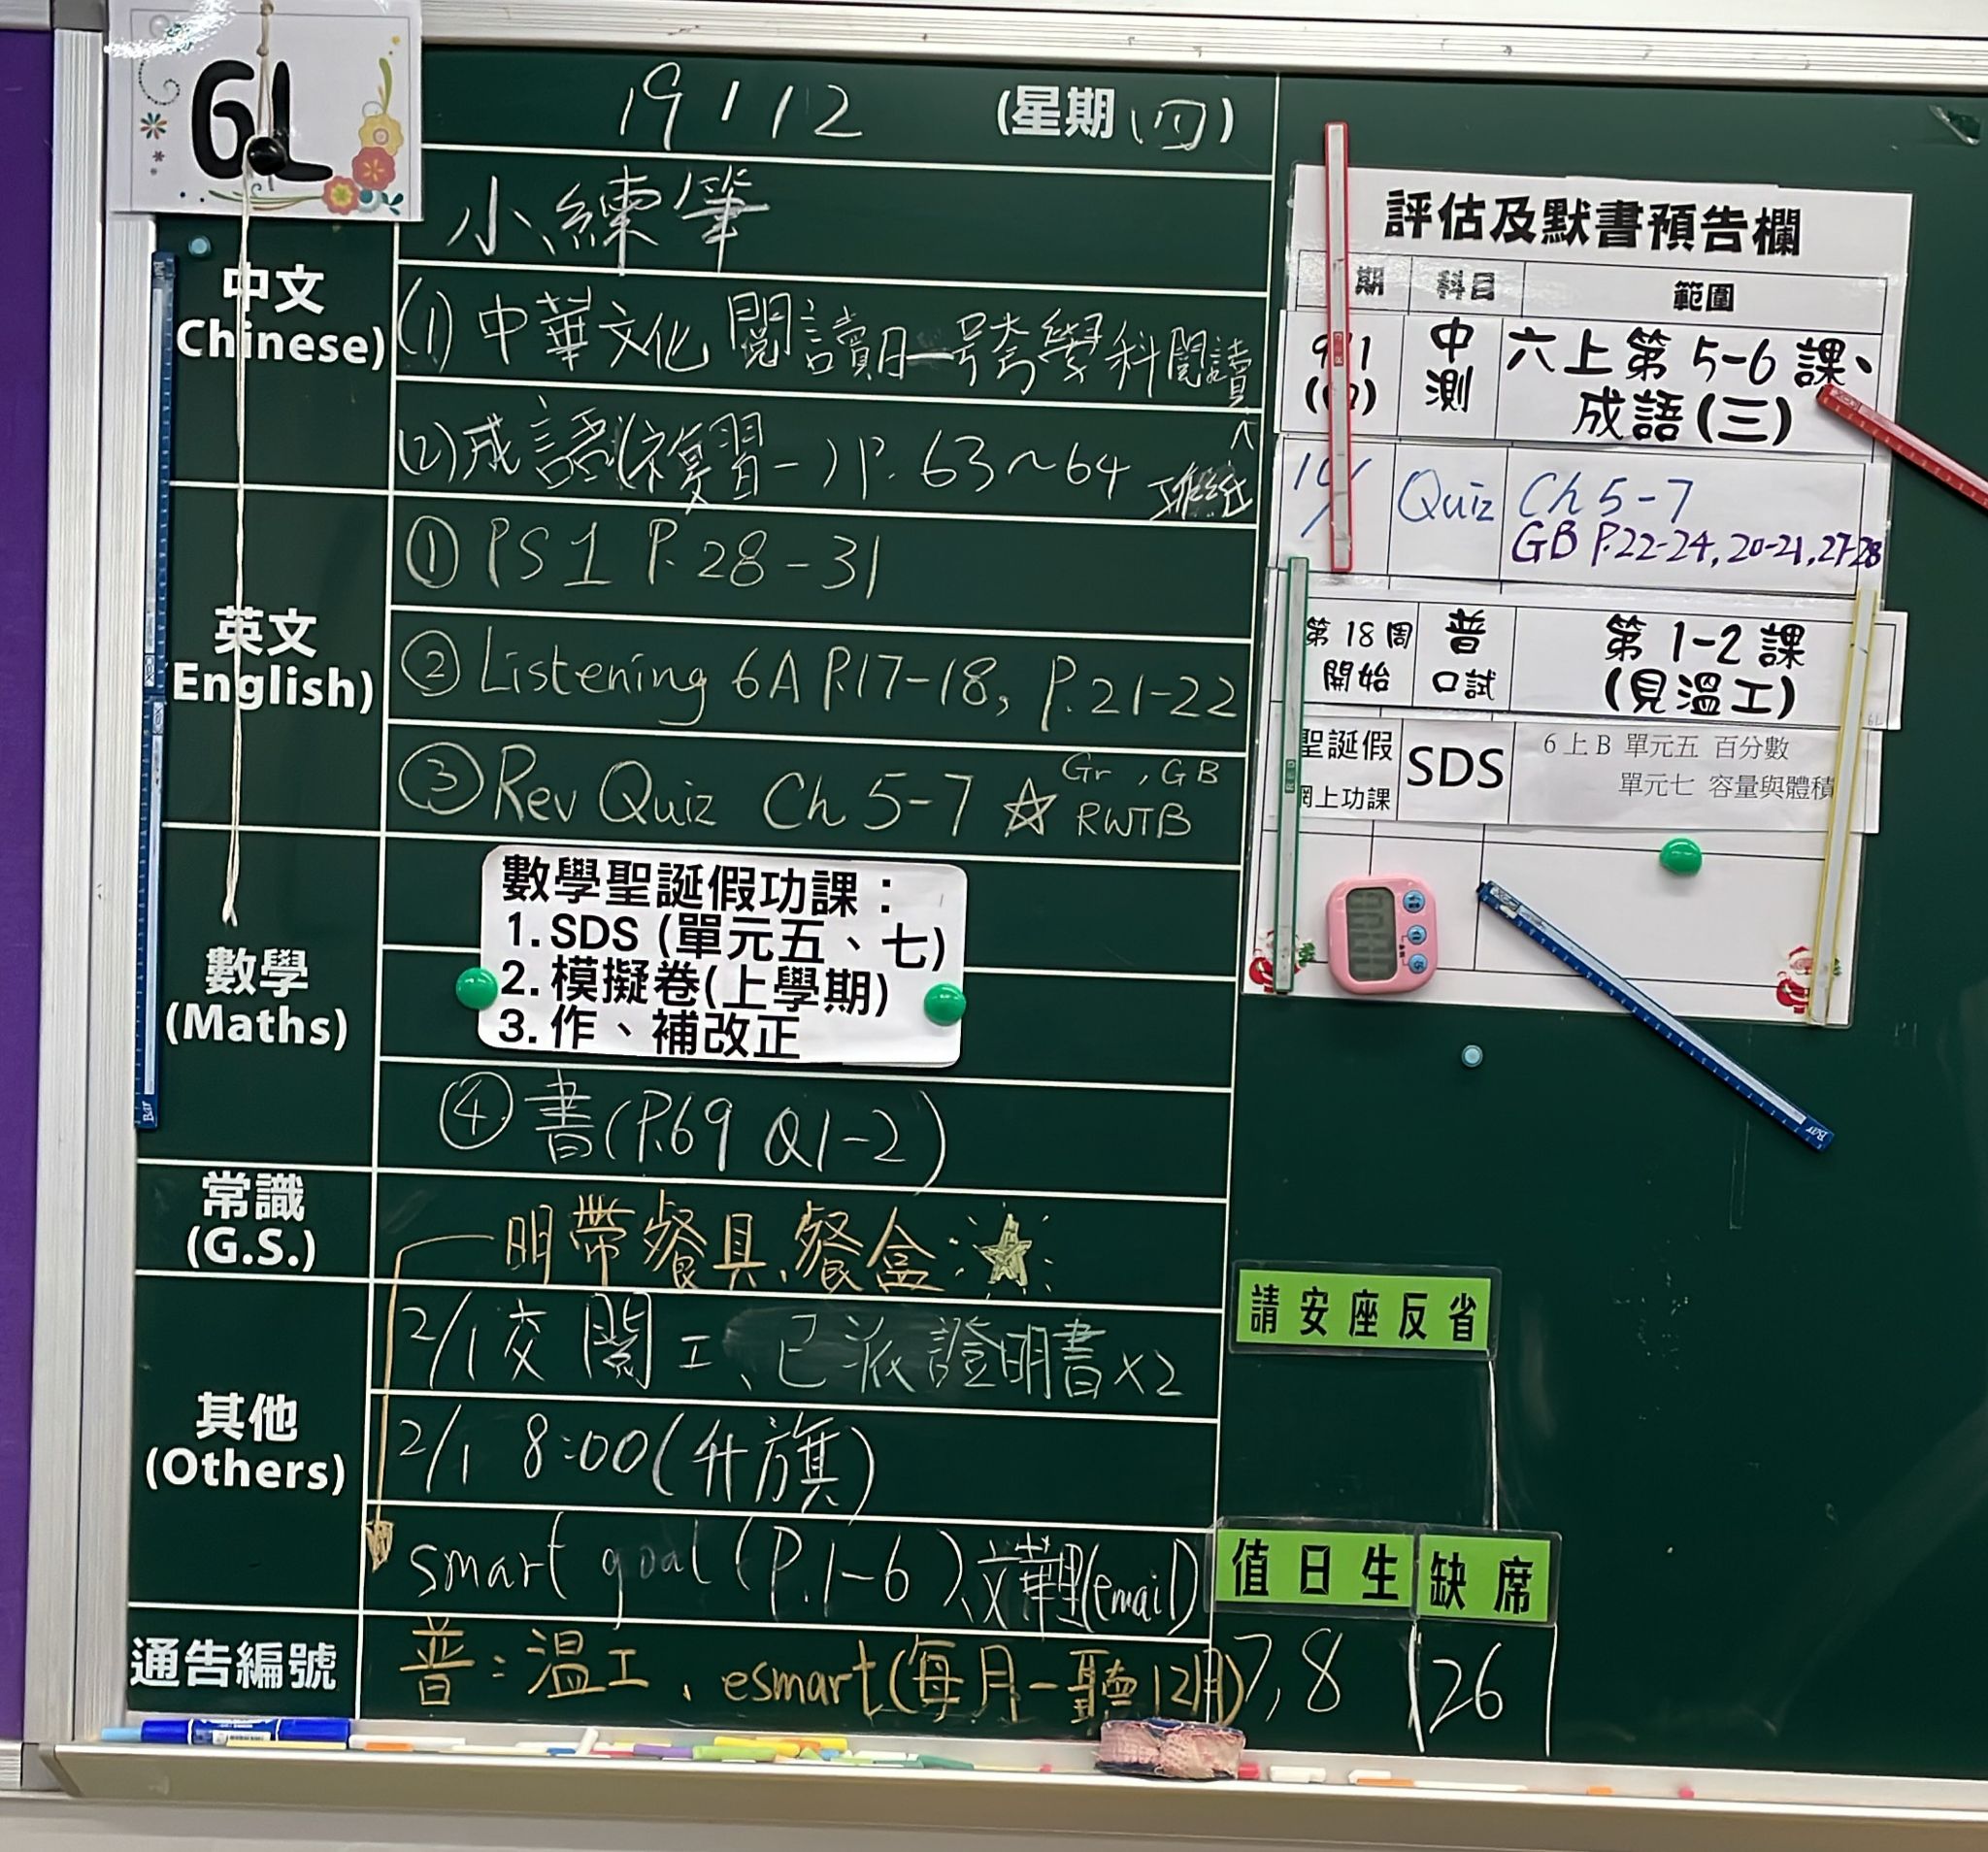 6L
19 / 12 (星期四)
中文
Chinese)
小練筆
(1) 中華文化閱讀月—跨學科閱讀
(2) 成語(複習一) P. 63～64
英文
(English)
① PS 1 P. 28 - 31
② Listening 6A P.17-18, P. 21-22
③ Rev Quiz Ch 5-7 ☆ Gr, GB
RWTB
數學
(Maths)
數學聖誕假功課：
1. SDS (單元五、七)
2. 模擬卷(上學期)
3. 作、補改正
④ 書(P.69 Q1-2)
常識
(G.S.)
明帶餐具、餐盒
其他
(Others)
2/1 交閱工、已派證明書×2
2/1 8:00 (升旗)
smart goal (P.1-6)、文華(email)
通告編號
普：溫工、esmart(每月一聽12月)
評估及默書預告欄
期 科目 範圍
9/1 中測 六上第 5-6 課、
成語(三)
Quiz Ch 5-7
GB P.22-24, 20-21, 27-28
第 18 周 開始 普 口試 第 1-2 課
(見溫工)
聖誕假 網上功課 SDS 6上B 單元五 百分數
單元七 容量與體積
請安座反省
值日生 缺席
7, 8 26